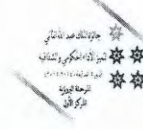 جائزة الملك عبد الله الثاني
لتميز الأداء الحكومي والشفافية
المرحلة البرونزية
المركز الأول